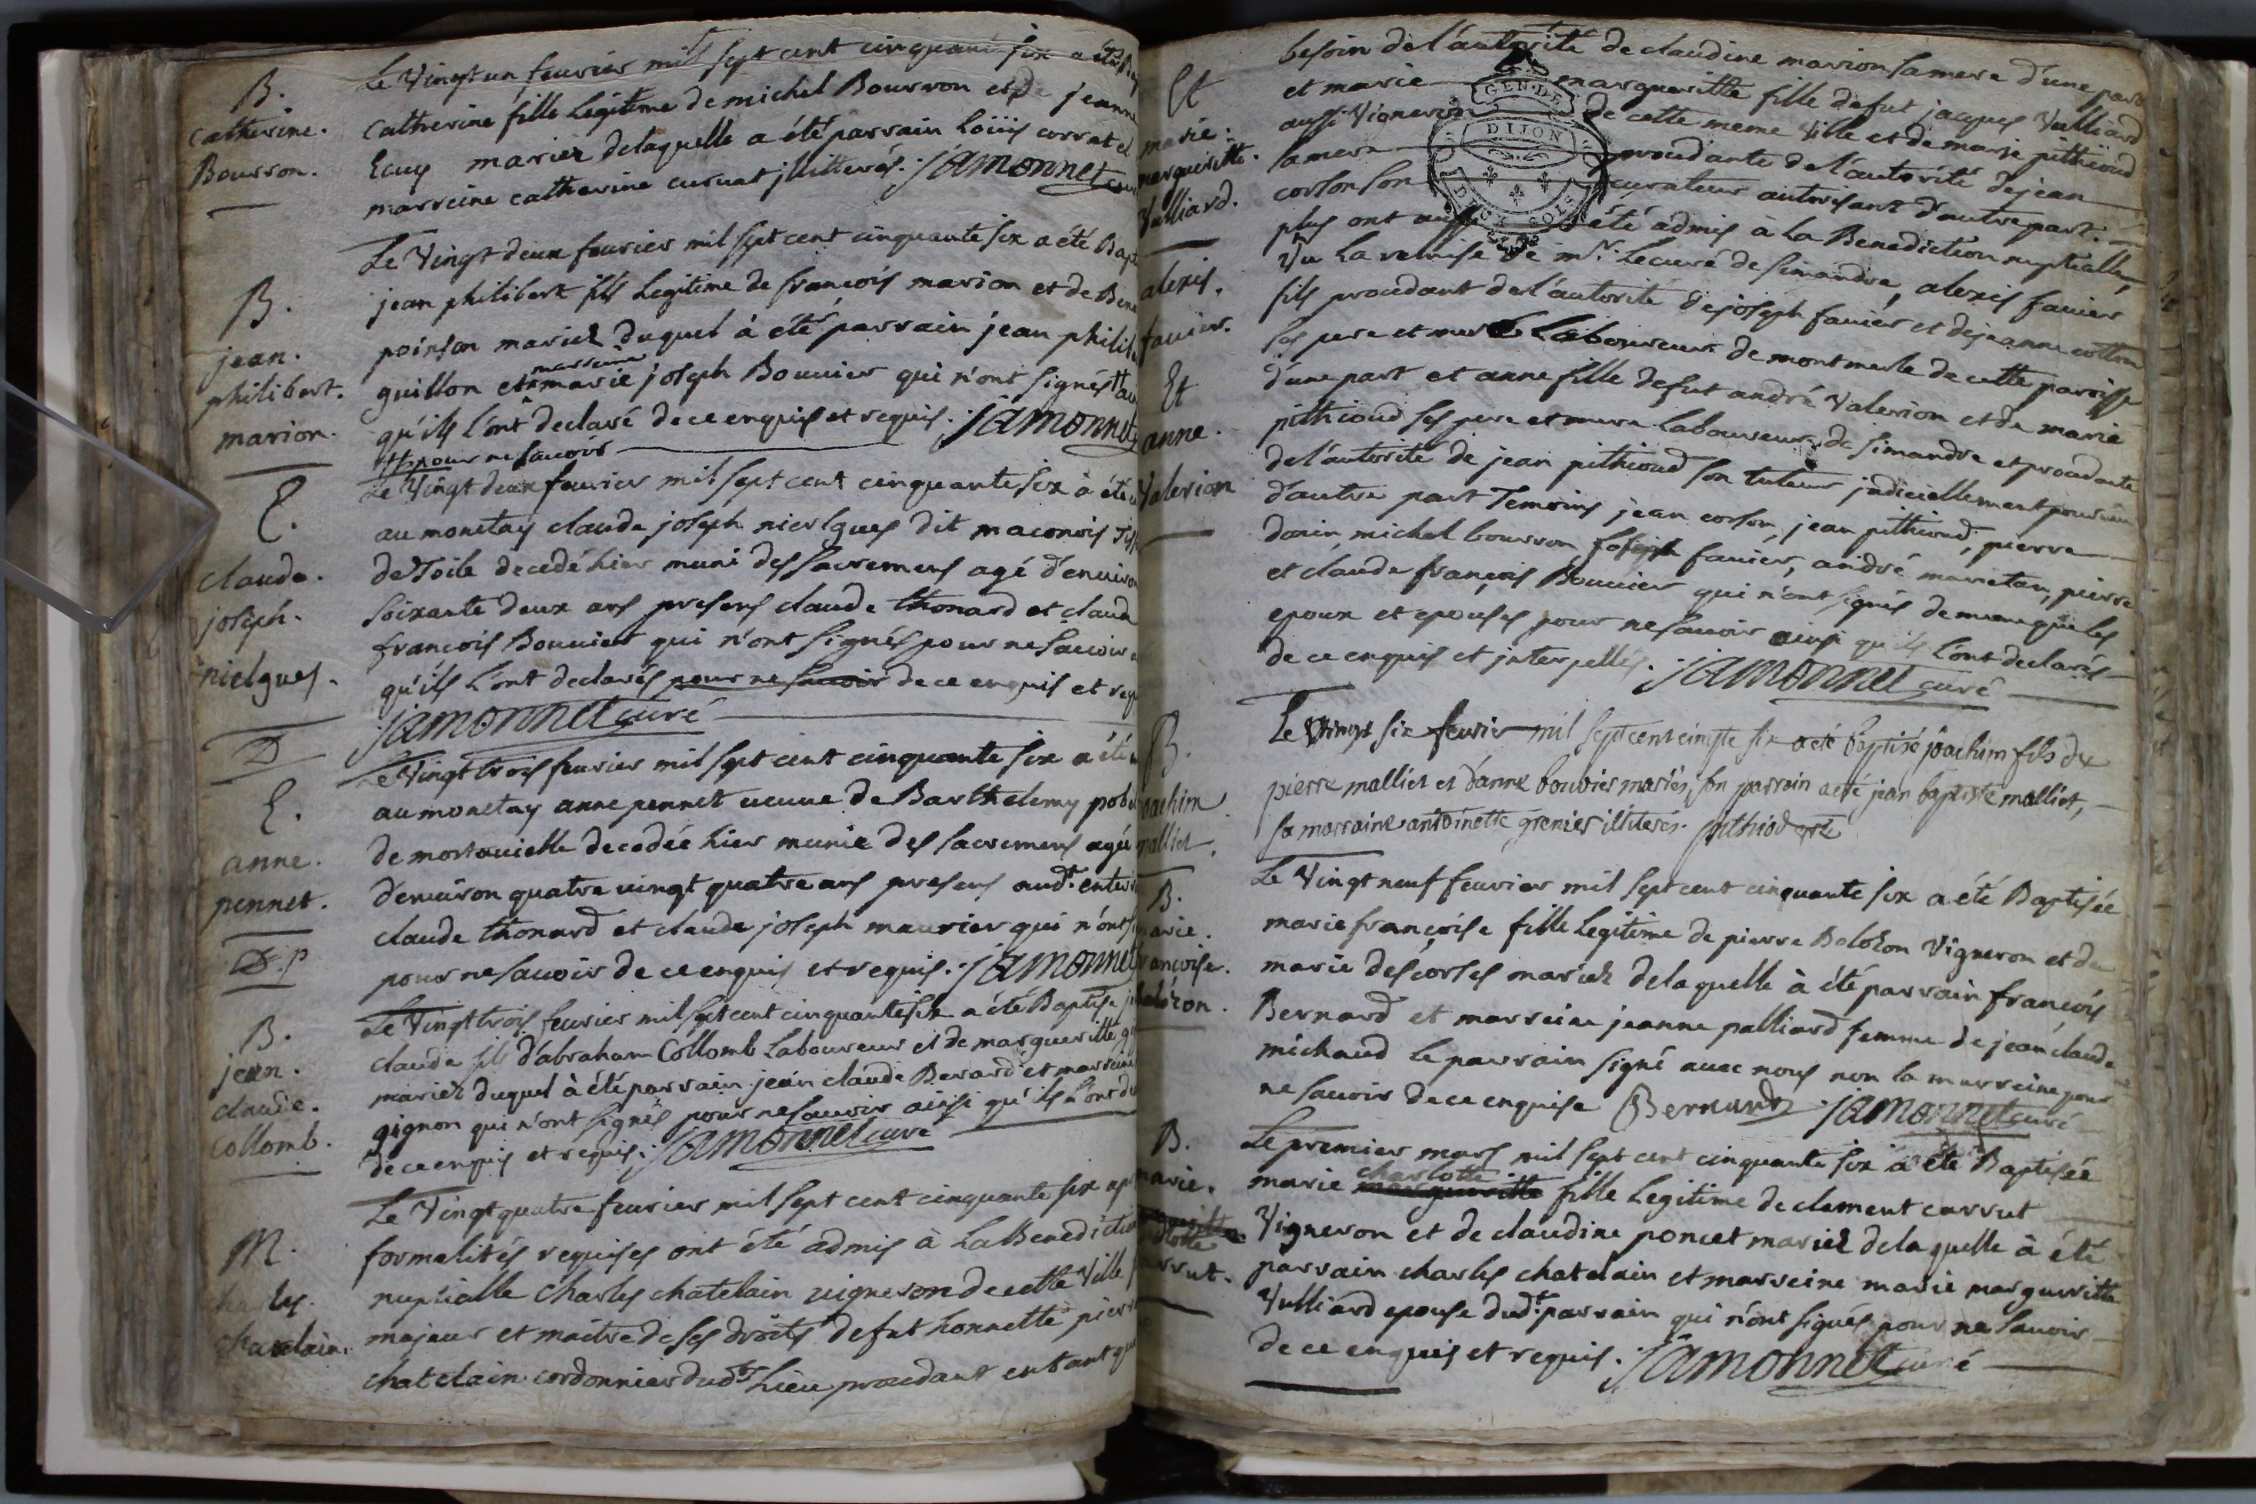 B.
catherine.
Bourron.
Le Vingt un feurier mil sept cent cinquante six a été
Catherine fille Legitime de michel Bourron et de jeanne
Ecuy mariez de laquelle a été parrain Loüis corrat et
marreine catherine curuat jllitterés. jamonnet
B.
jean.
philibert.
marion.
Le Vingt deux feurier mil sept cent cinquante six a été Bapt
jean philibert fils Legitime de francois marion et de Bene
poinson mariez duquel à été parrain jean philib
guillon et marreine marie joseph Bouuier qui n'ont signés
qu'ils L'ont declaré de ce enquis et requis. jamonnet
pour ne sauoir
E.
claude.
joseph.
nielgues.
D
Le Vingt deux feurier mil sept cent cinquante six à été
au monetay claude joseph nielgues dit maconois
de Toile decedé hier muni des sacremens agé d'enuiron
soixante deux ans presens claude thonard et claude
francois Bouuier qui n'ont signés pour ne sauoir
qu'ils L'ont declarés pour ne sauoir de ce enquis et requ
jamonnet curé
E.
anne.
pennet.
D.P
Le Vingt trois feurier mil sept cent cinquante six a été
au monetay anne pennet ueuue de Barthelemy pob
de mortouielle decedée hier munie des sacremens agée
d'enuiron quatre uingt quatre ans presens audt. enter
claude thonard et claude joseph maurier qui n'ont
pour ne sauoir de ce enquis et requis. jamonnet
B.
jean.
claude.
collomb.
Le Vingt trois feurier mil sept cent cinquante six a été Baptisé
claude fils d'abraham Collomb Laboureur et de margueritte
mariez duquel à été parrain jean claude Berard et marreine
gignon qui n'ont signés pour ne sauoir ainsi qu'ils L'ont
de ce enquis et requis. jamonnet curé
M.
charles.
chatelain.
Le Vingt quatre feurier mil sept cent cinquante six
formalités requises ont été admis à La Benediction
nuptialle Charles chatelain uigneron de cette Ville
majeur et maitre de ses droits de fut honnette pierre
chatelain cordonnier dudt. Lieu procedant en tant que
Et
marie.
margueritte.
Vulliard.
besoin de l'autorité de claudine marion sa mere d'une part
et marie margueritte fille de fut jacques Vulliard
aussi Vigneron de cette meme Ville et de marie pithioud
sa mere procedante de l'autorité de jean
corson son curateur autorisant d'autre part.
GEN. DE
DIJON
DEUX SOLS
alexis.
fauier.
Et
anne.
Valerion
plus ont aussi été admis à La Benediction nuptialle,
Vu La remise de mr. Lecuré de simandre, alexis fauier
fils procedant de l'autorité de joseph fauier et de jeanne cotton
ses pere et mere Laboureurs de montmerle de cette parroisse
d'une part et anne fille de fut andré Valerion et de marie
pithioud ses pere et mere Laboureurs de simandre et procedante
de l'autorité de jean pithioud son tuteur judiciellement pourueu
d'autre part Temoins jean corson, jean pithioud, pierre
donin, michel bourron, joseph fauier, andré marietan, pierre
et claude françois Bouuier qui n'ont signés de meme que les
epoux et epouses pour ne sauoir ainsi qu'ils L'ont declarés
de ce enquis et jnterpellés. jamonnet curé
B.
joachim
malliet.
Le Vingt six feurier mil sept cent cinqte six a eté baptisé joachim fils de
pierre malliet et d'anne bouvier mariés, son parrain a eté jean baptiste malliet,
sa marraine antoinette grenier illiterés. pithiod
B.
marie.
francoise.
Bolozon.
Le Vingt neuf feurier mil sept cent cinquante six a été Baptisée
marie françoise fille Legitime de pierre Bolozon Vigneron et de
marie descorses mariez de laquelle à été parrain francois
Bernard et marreine jeanne palliard femme de jean claude
michaud Le parrain signé auec nous non la marreine pour
ne sauoir de ce enquise Bernard jamonnet curé
B.
marie.
charlotte
currut.
Le premier mars mil sept cent cinquante six à été Baptisée
marie margueritte charlotte fille Legitime de clement currut
Vigneron et de claudine poncet mariez de laquelle à été
parrain charles chatelain et marreine marie margueritte
Vulliard epouse dudt. parrain qui n'ont signés pour ne sauoir
de ce enquis et requis. jamonnet curé